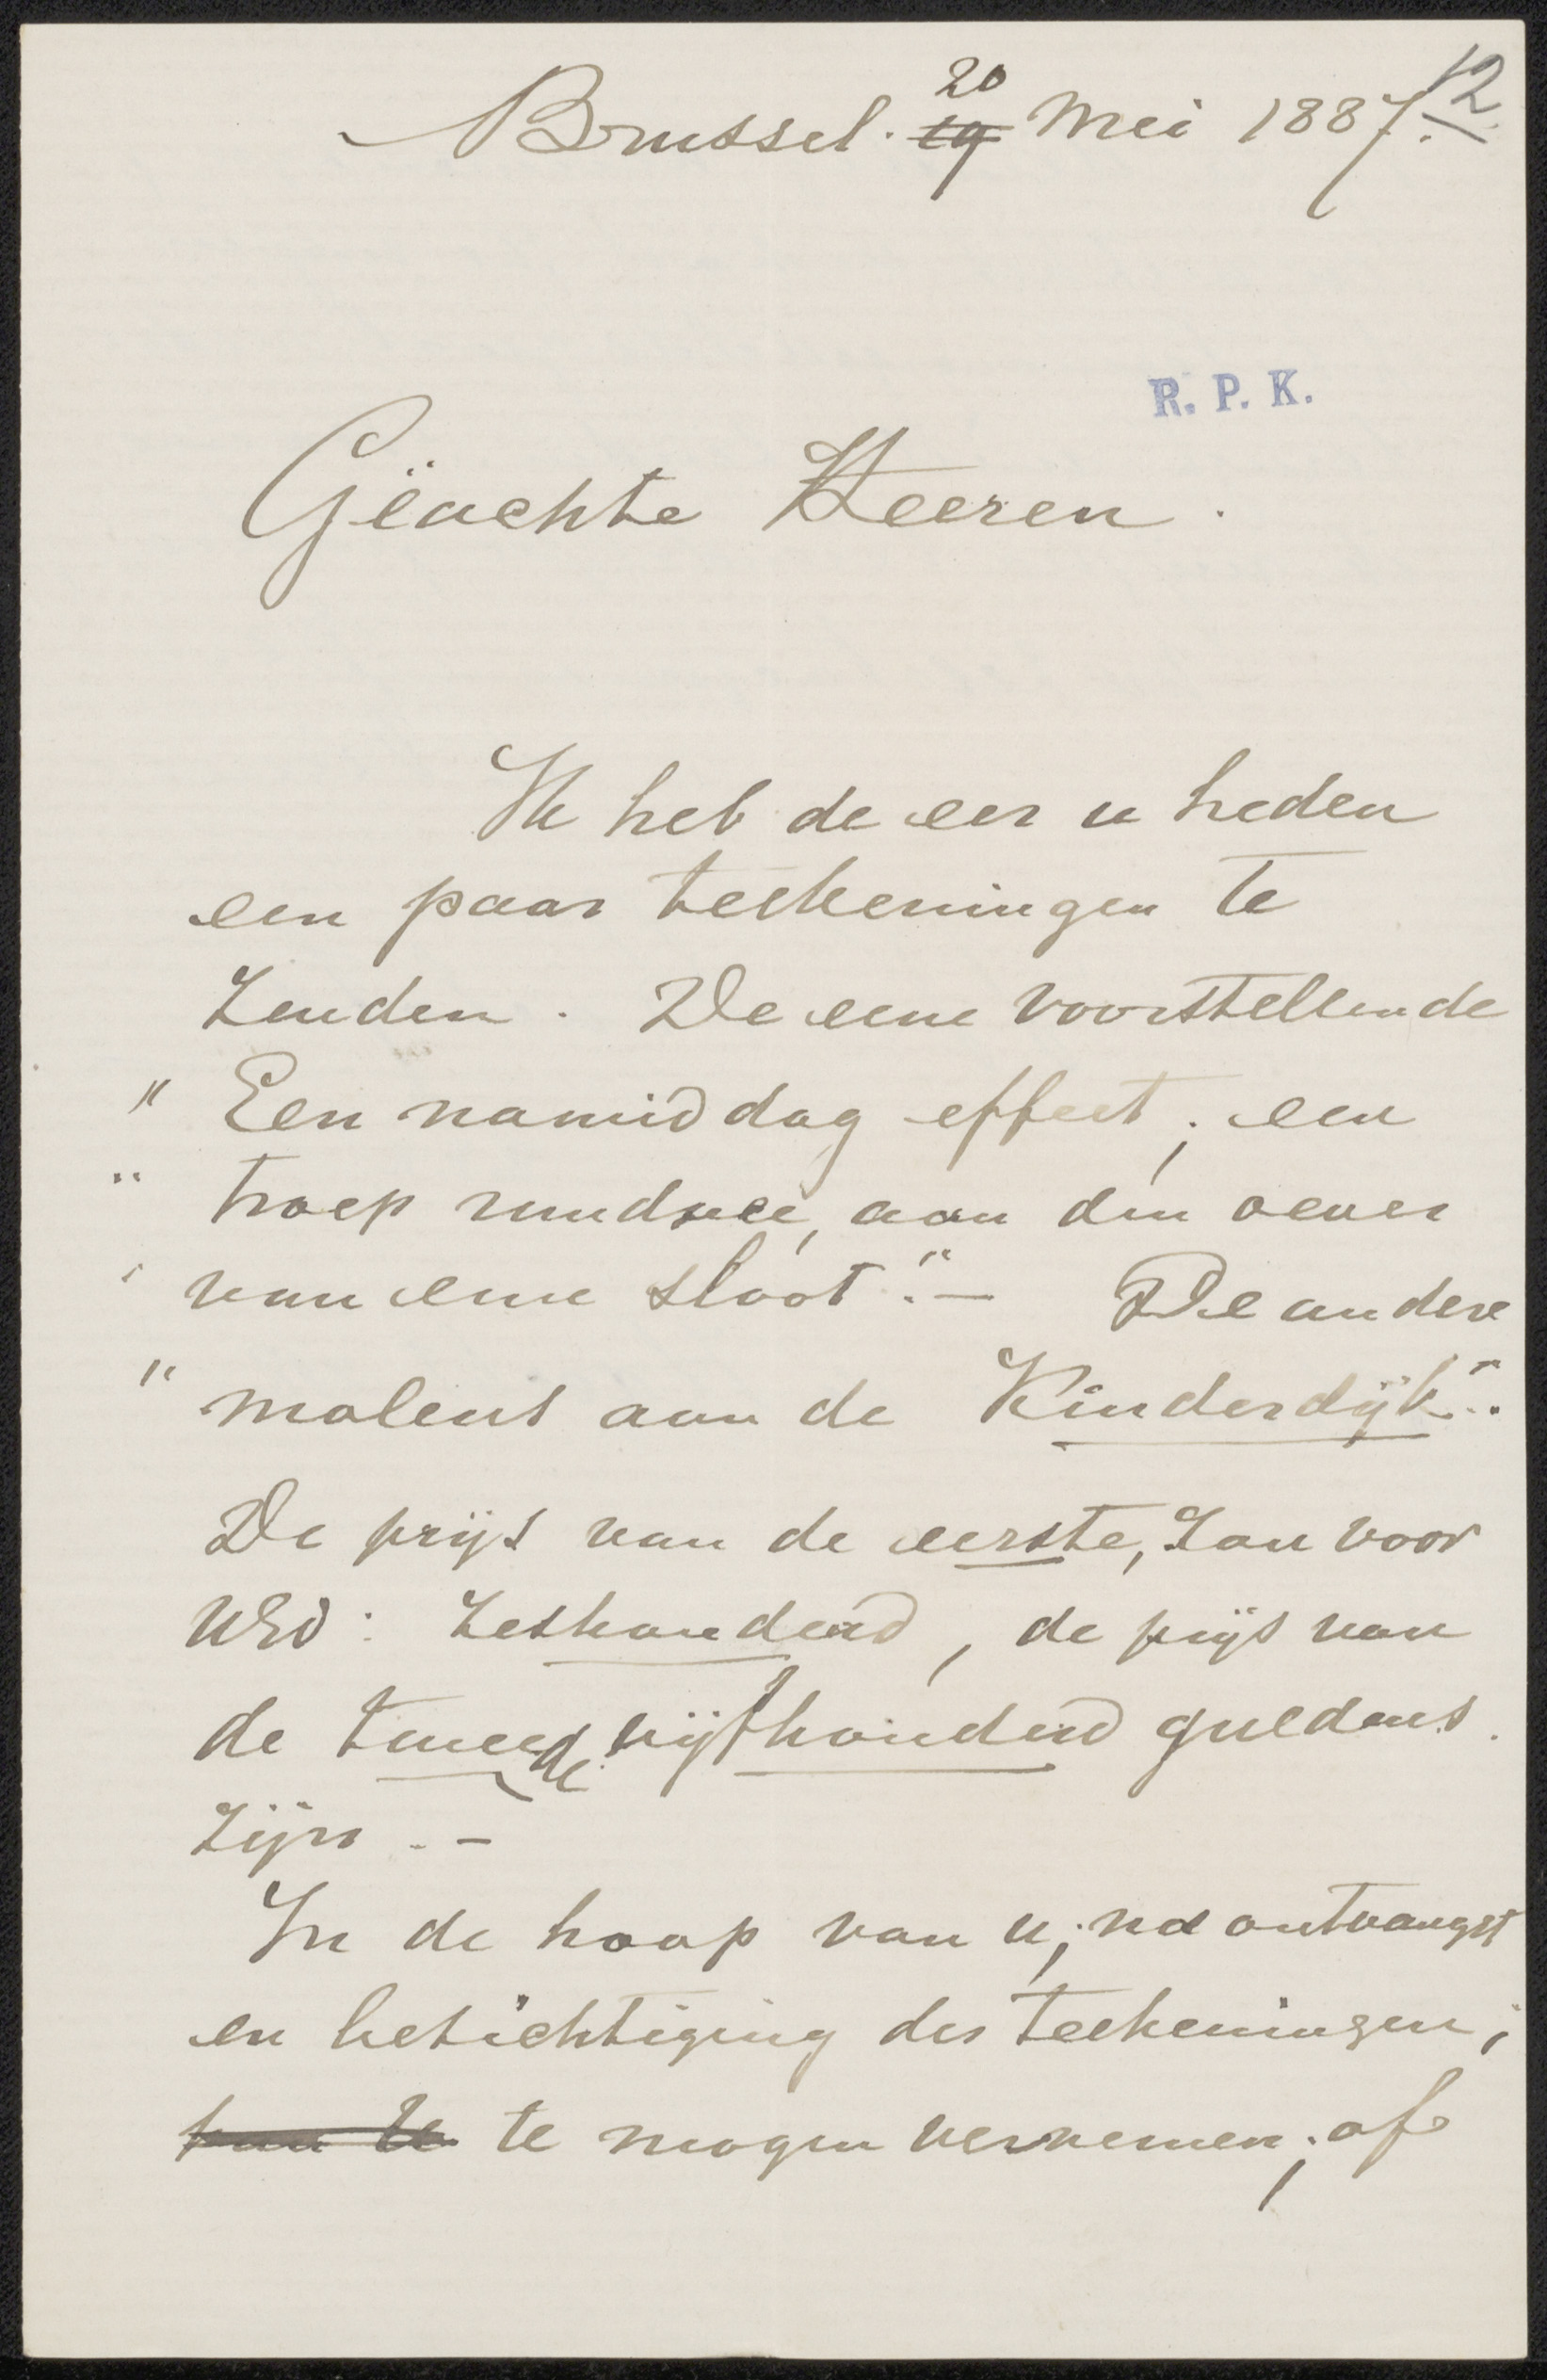 12
Brussel. 20 19 Mei 1887.
R. P. K.
Gëachte Heeren.
Ik heb de eer u heden
een paar teekeningen te
zenden. De eene voorstellende
" Een namiddag effect; een
" troep rundvee, aan den oever
" van eene sloot." — De andere
" molens aan de Kinderdijk".
De prijs van de eerste, zou voor
UEd: zeshonderd, de prijs van
de tweede vijfhonderd guldens.
zijn. —
In de hoop van u; na ontvangst
en bezichtiging der teekeningen;
te mogen vernemen; of